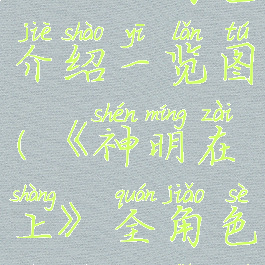 jiè shào yī lǎn tú
介绍一览图
shén míng zài
(《神明在
shàng quán jiǎo sè
上》全角色